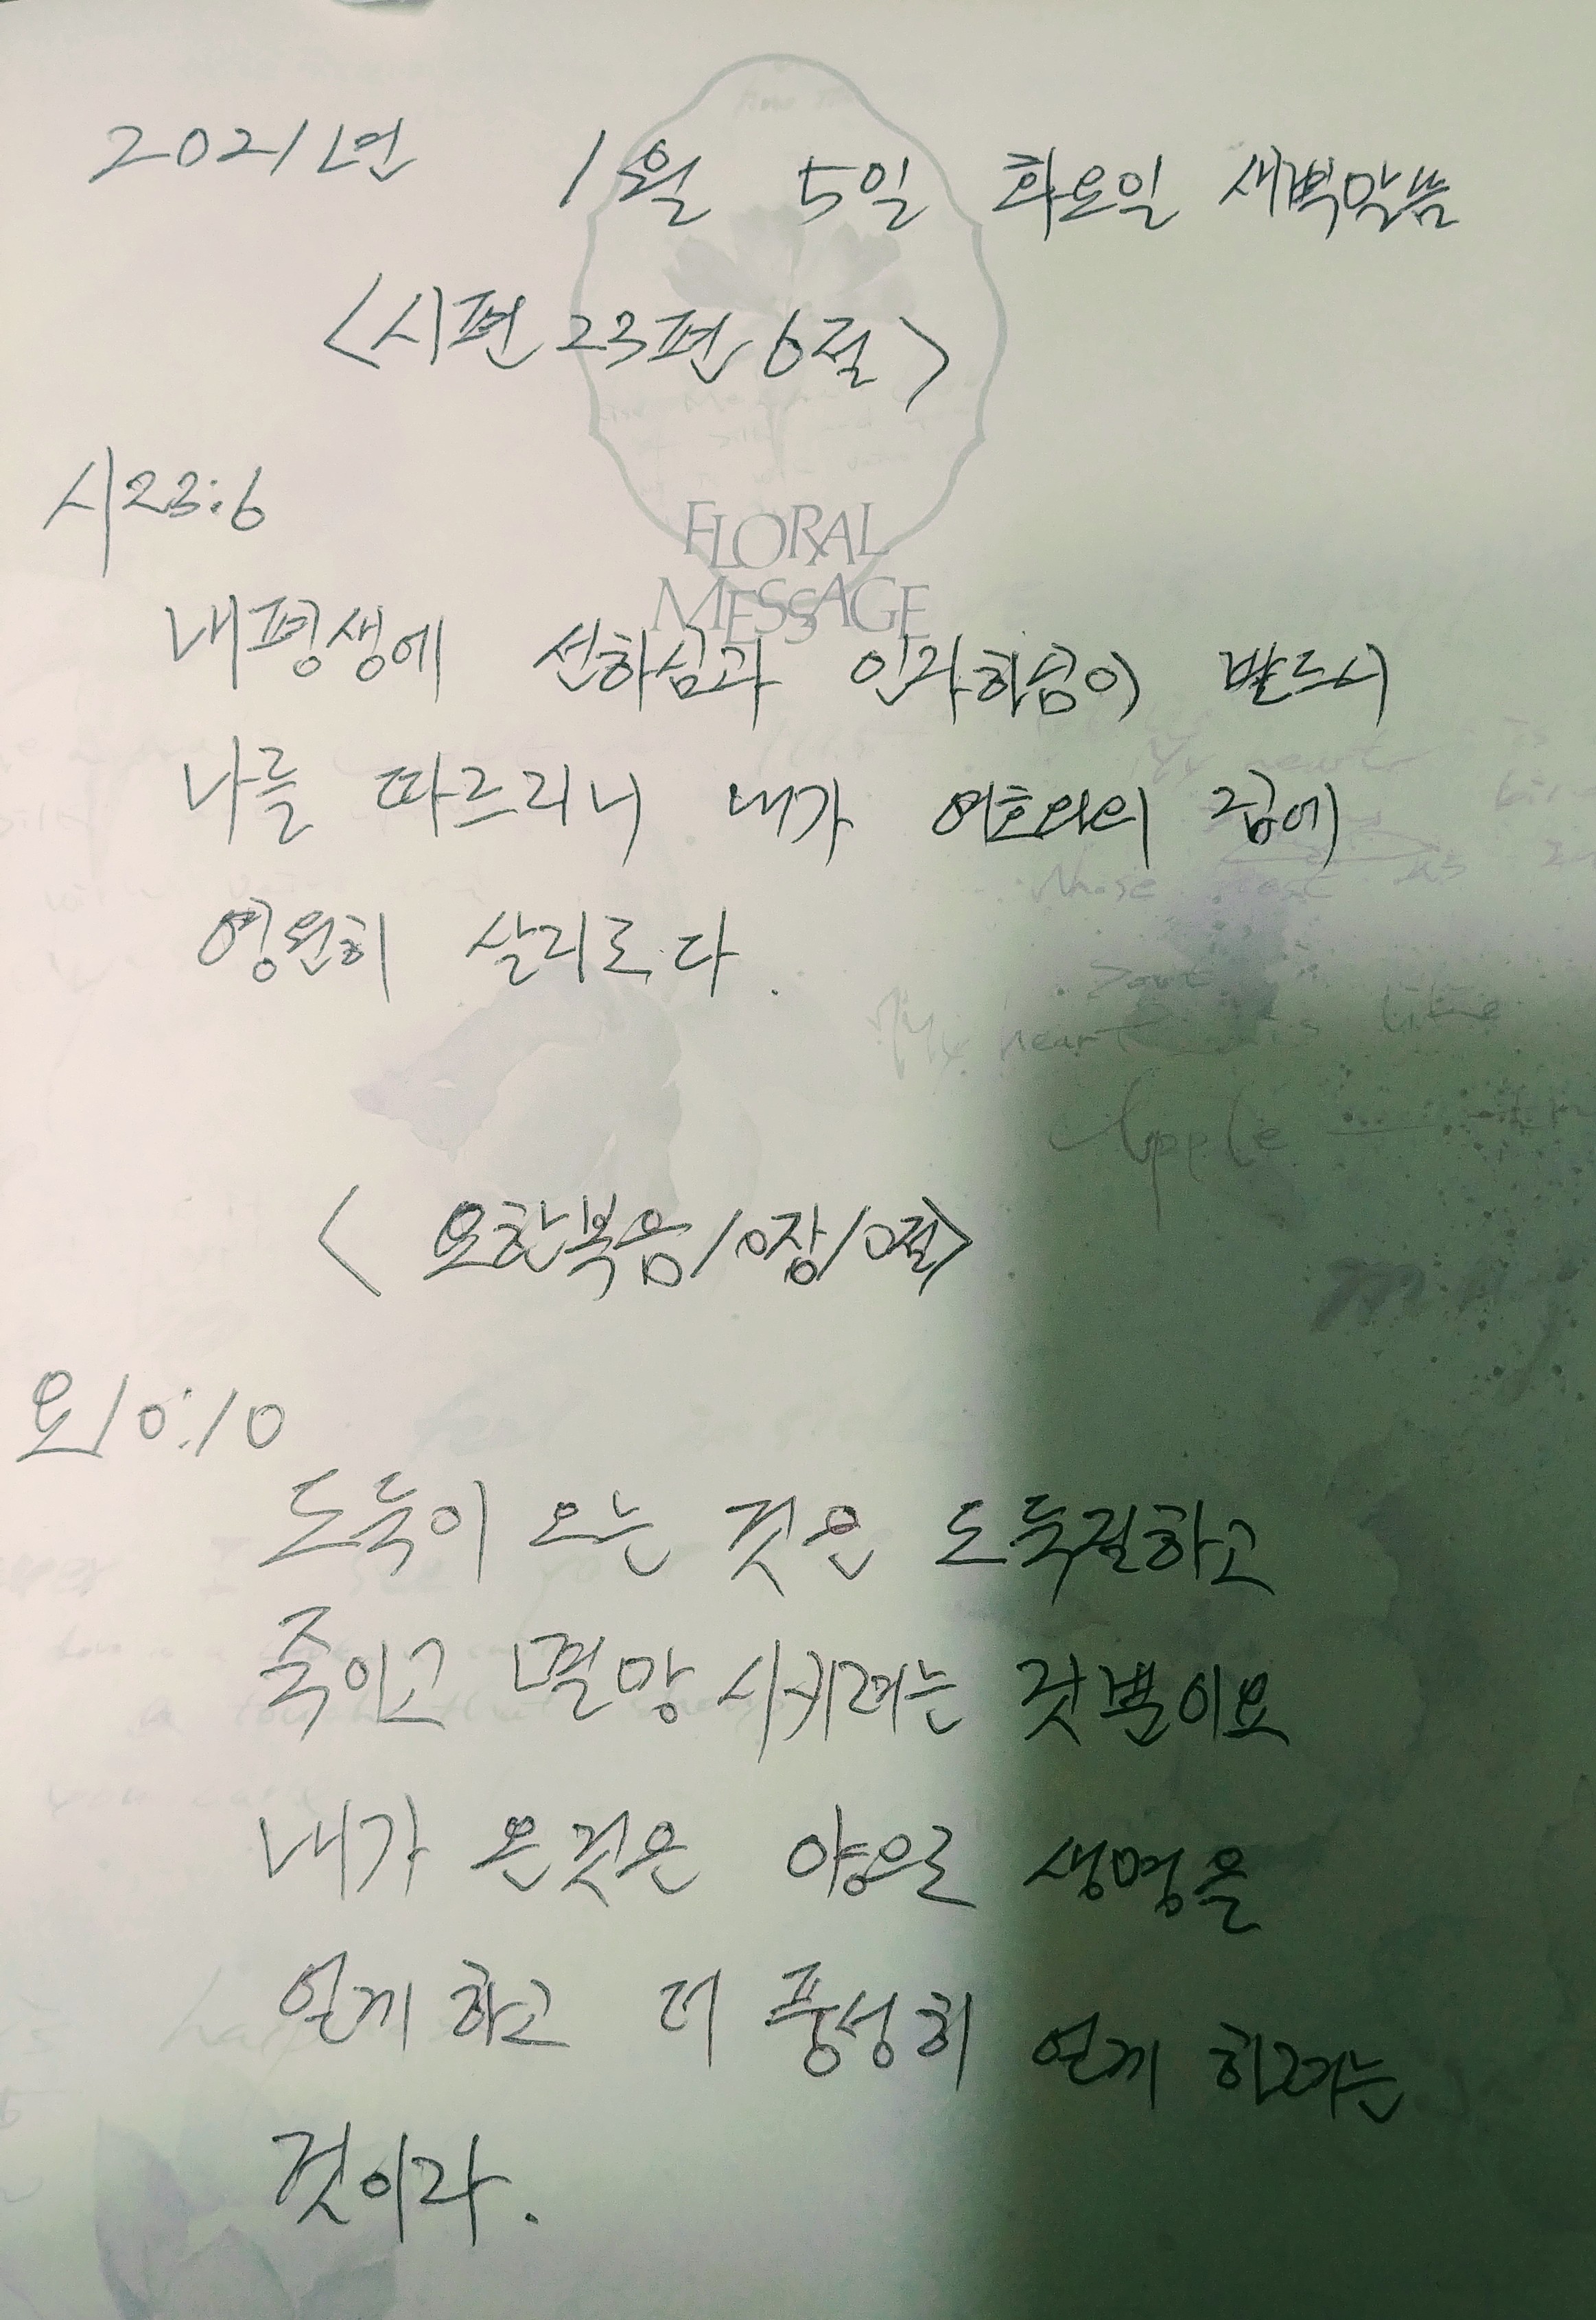 2021년 1월 5일 화요일 새벽말씀
<시편 23편 6절>
시23:6
FLORAL
MESSAGE
내평생에 선하심과 인자하심이 반드시
나를 따르리니 내가 여호와의 집에
영원히 살리로다.
My heart is
whose nest is
My heart is like
Apple
<요한복음10장10절>
요10:10
도둑이 오는 것은 도둑질하고
죽이고 멸망시키려는 것뿐이요
내가 온것은 양으로 생명을
얻게 하고 더 풍성히 얻게 하려는
것이라.